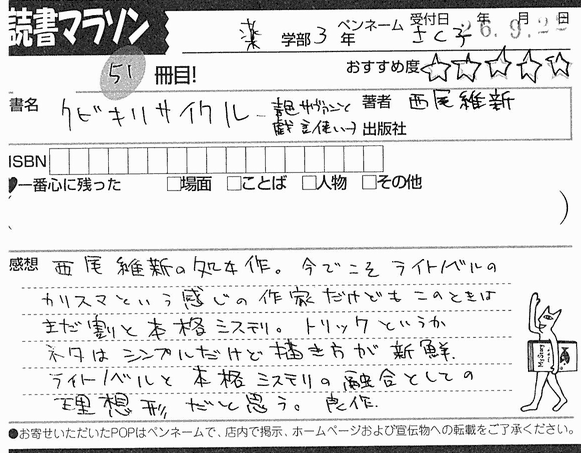 読書マラソン
薬 学部 3 年 ペンネーム さく子 受付日 年 月 日
51 冊目!
おすすめ度☆☆☆☆☆
書名 クビキリサイクル 著者 西尾維新
戯言使い 出版社
ISBN
一番心に残った □場面 □ことば □人物 □その他
感想 西尾維新の処女作。今でこそライトノベルの
カリスマという感じの作家だけどもこのときは
まだ割と本格ミステリ。トリックというか
ネタはシンプルだけど描き方が新鮮.
ライトノベルと本格ミステリの融合としての
理想形だと思う。良作.
●お寄せいただいたPOPはペンネームで、店内で掲示、ホームページおよび宣伝物への転載をご了承ください。